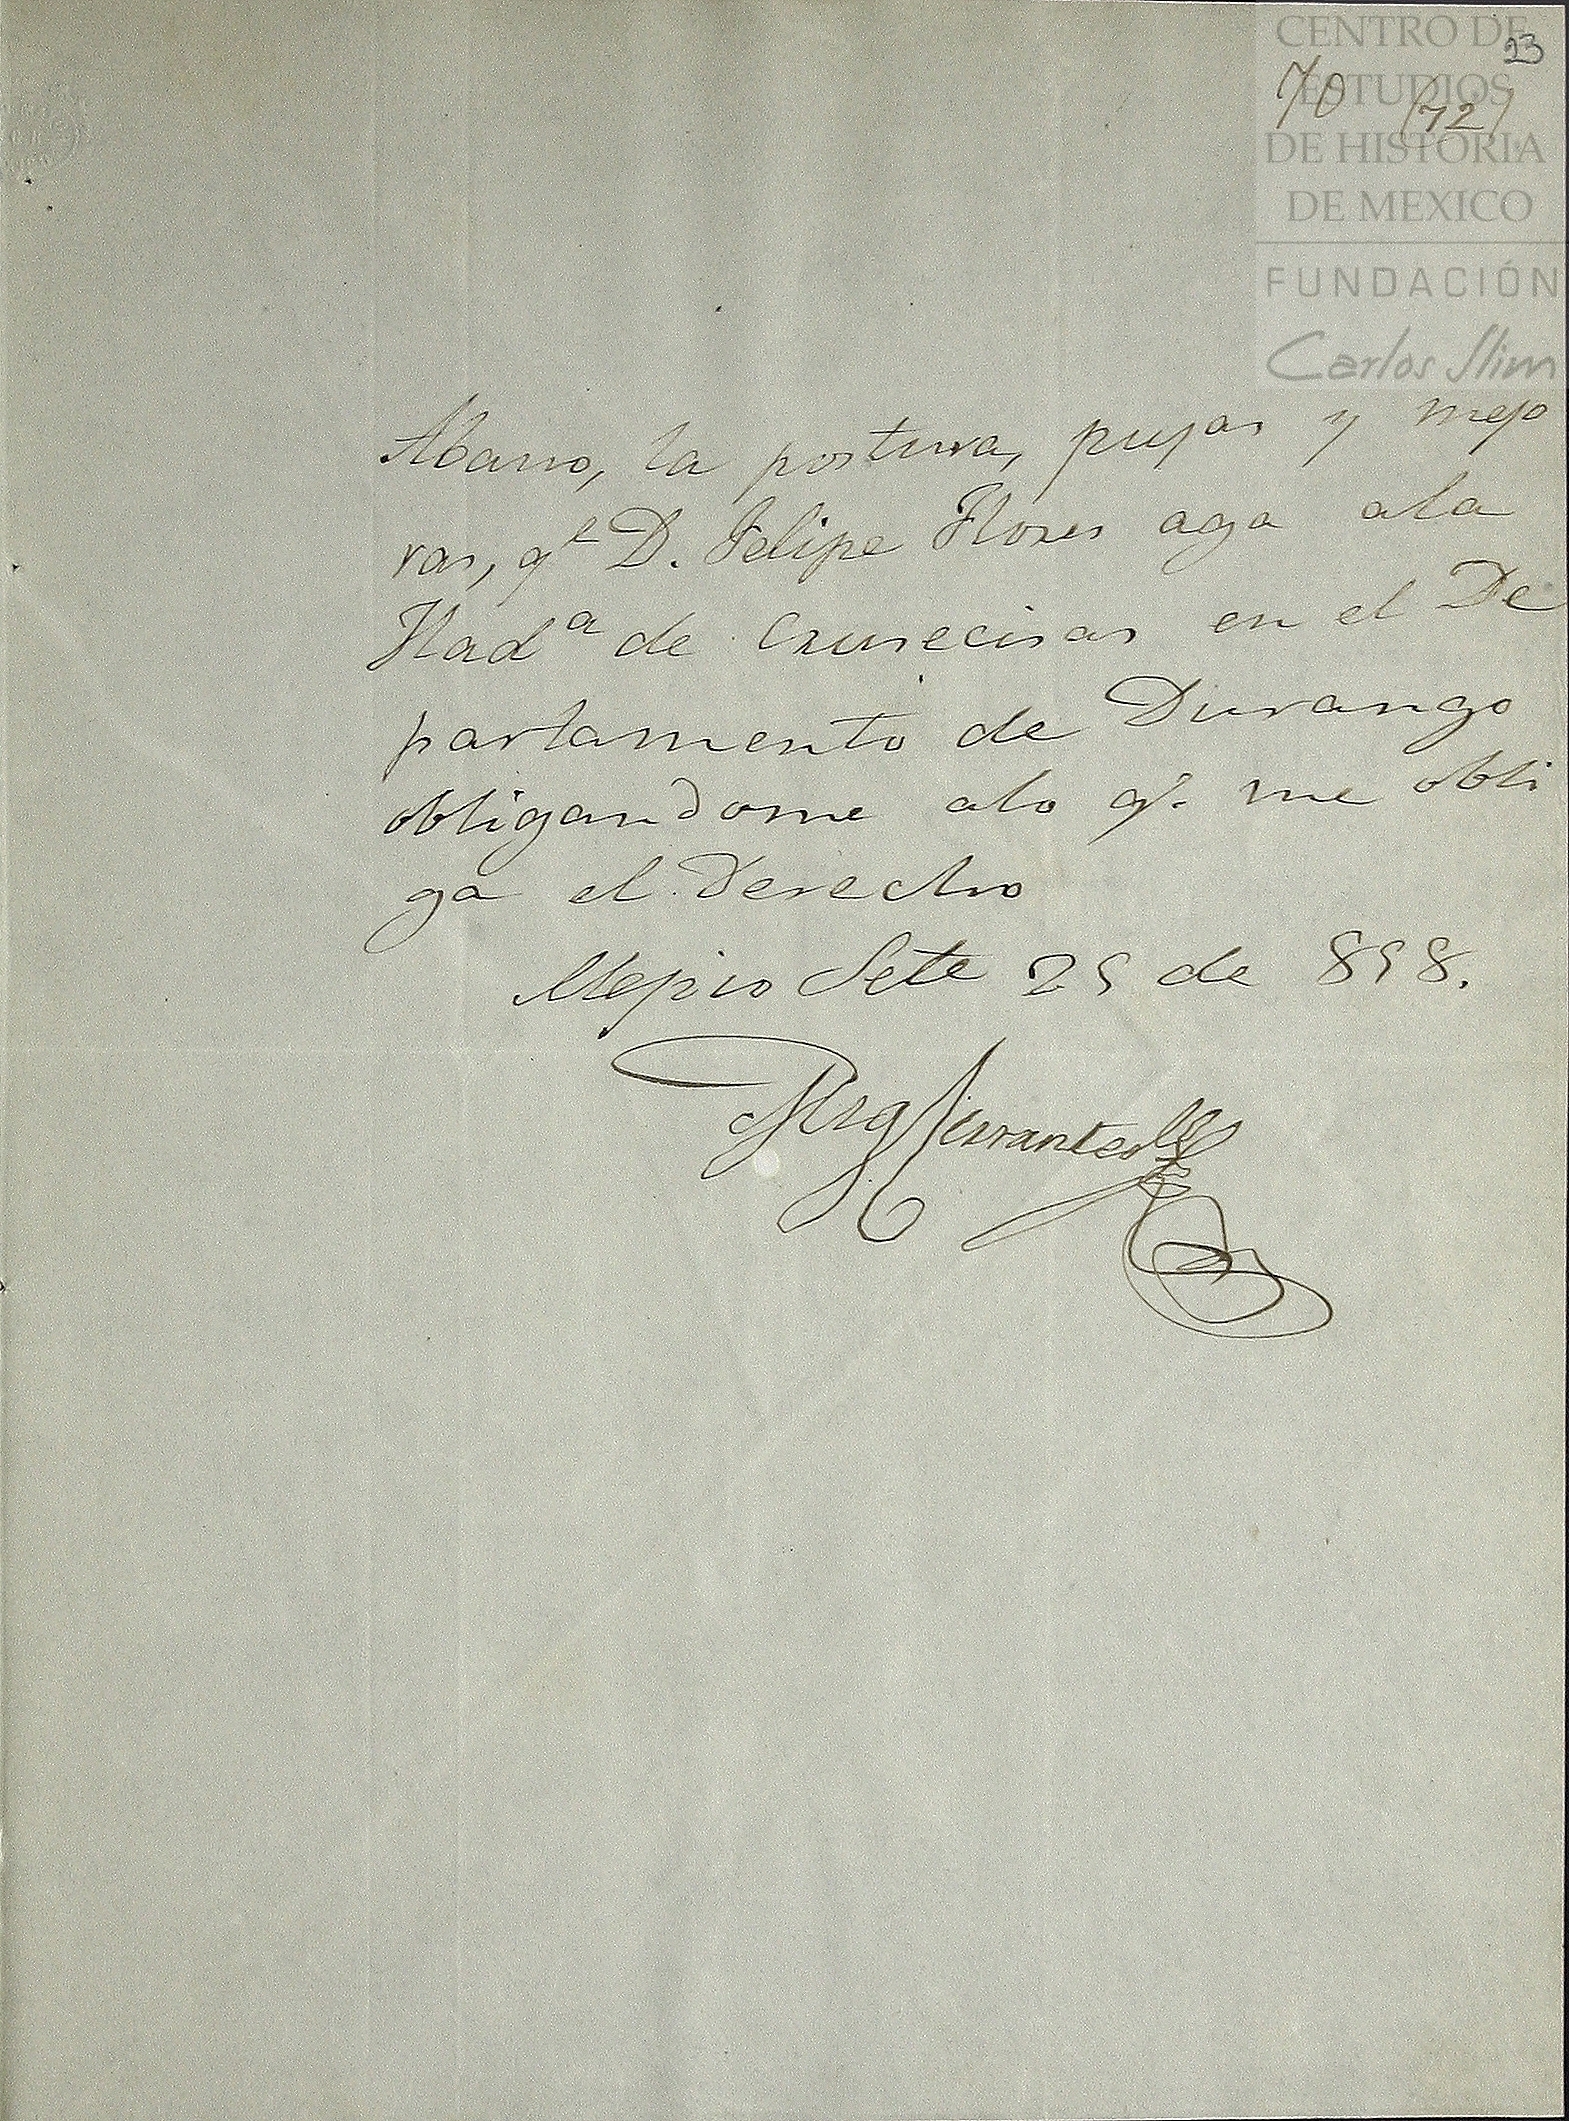 CENTRO DE
ESTUDIOS
DE HISTORIA
DE MEXICO
FUNDACIÓN
Carlos Slim
23
70 (72)
Abano, la postura, pujas y mejo
ras, qe D. Felipe Flores aga ala
Hada de Crusecisas en el De
partamento de Durango
obligandome alo q.e me obli
ga el Derecho
Mejico Sete 25 de 858.
Cervantes